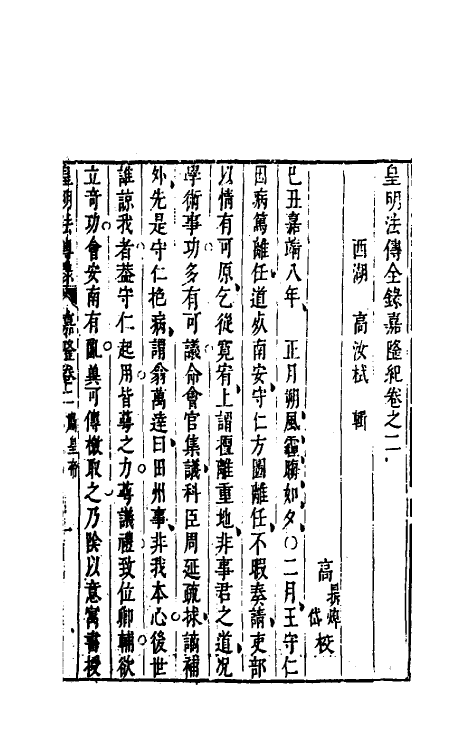 皇明法傳全錄嘉隆紀卷之二
西湖 高汝栻 輯
高 鼎焯 岱 校
己丑嘉靖八年 正月朔風霾晦如夕○二月王守仁
因病篤離任道㱕南安守仁方圖離任不暇奏請吏部
以情有可原乞從寬宥上謂擅離重地非事君之道况
學術事功多有可議命會官集議科臣周延疏捄謫補
外先是守仁抱病謂翁萬達曰田州事非我本心後世
誰諒我者葢守仁起用皆萼之力萼議禮致位卿輔欲
立竒功會安南有亂冀可傳檄取之乃陰以意寓書授
皇明法傳录 嘉隆卷二 肅皇帝